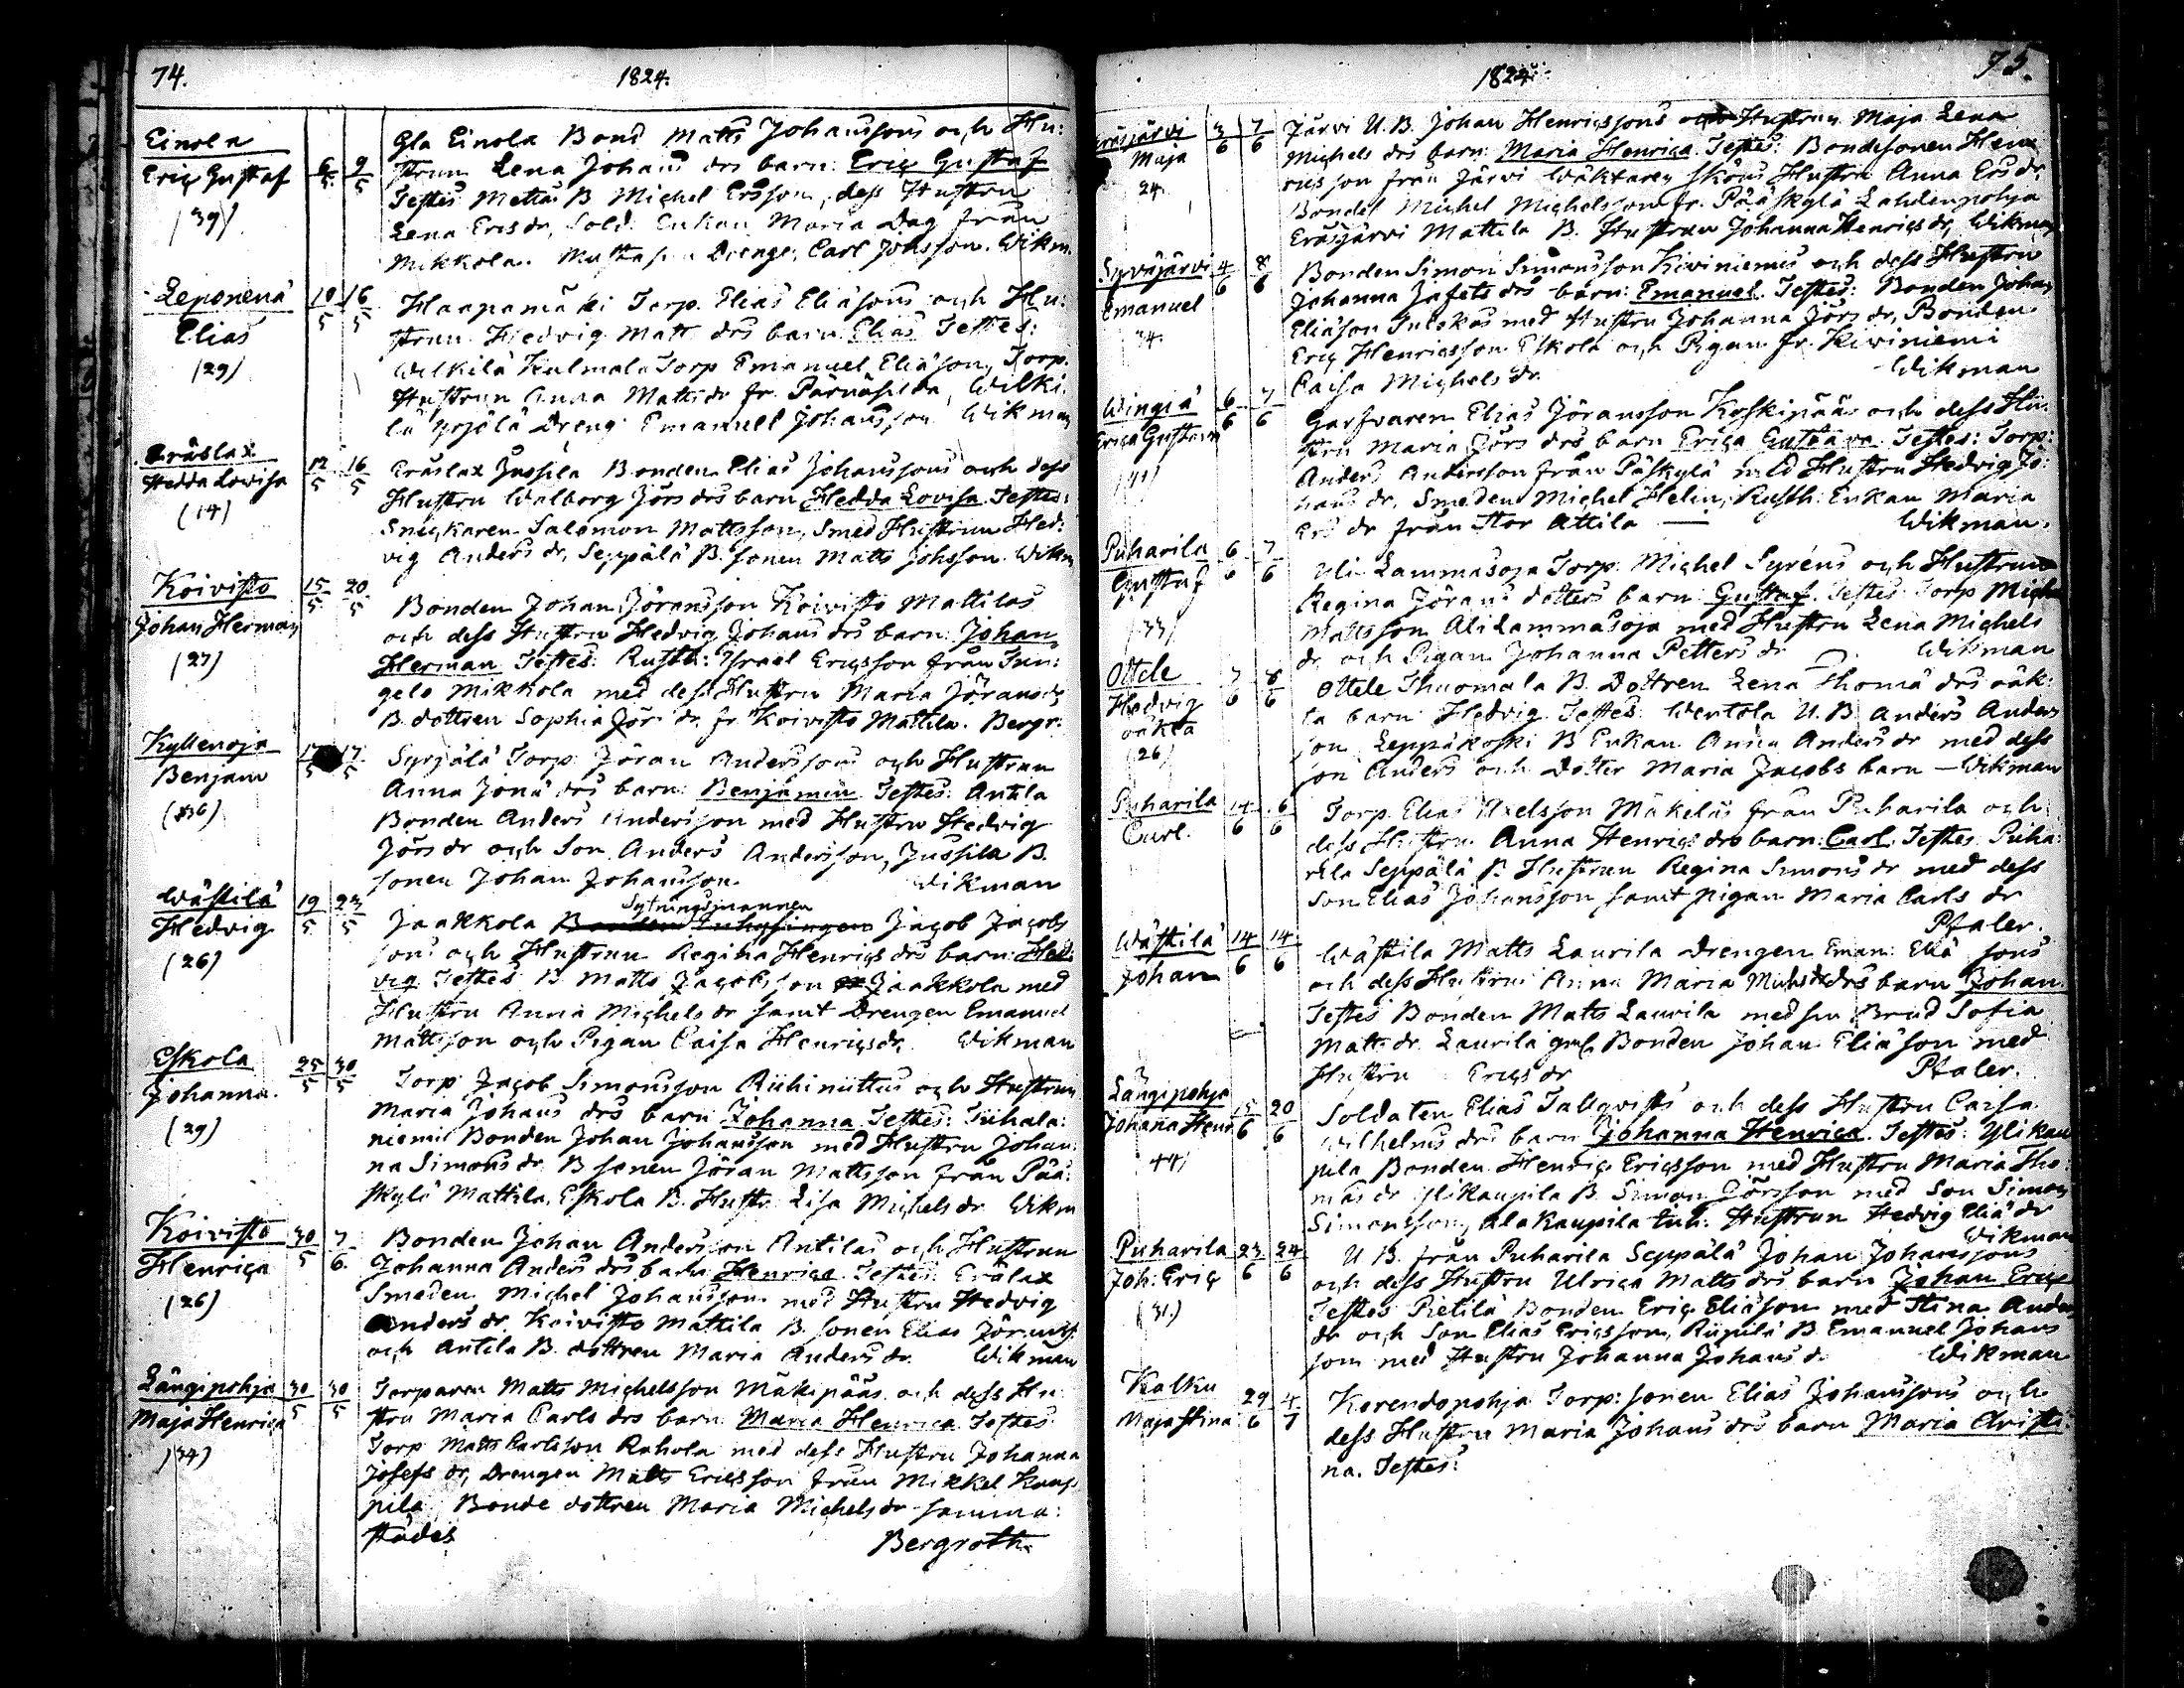 74.
1824.
Einola
Eric Gustaf
(39)
6/5 9/5
Gla Einola Bond Matts Johanssons och Hu:
strun Lena Johans drs barn: Eric Gustaf
Testes Mattas B Michel Ersson, dess Hustru
Lena Ersdr, Sold. Enkan Maria Dag från
Mikkola. Drengr Carl Johsson. Wikm.
Leponenä
Elias
(29)
10/5 16/5
Haapamäki Torp. Elias Eliäsons och Hu:
strun Hedvig Matts drs barn Elias Testes:
Wilkilä Kulmala Torp Emanuel Eliäson, Torp.
Hustrun Anna Matts dr fr. Pärnäsilda, Wilki:
lä Yrjölä Dreng Emanuell Johansson Wikman
Eräslax
Hedda Lovisa
(14)
12/5 16/5
Eräslax Jussila Bonden Elias Johanssons och dess
Hustru Walborg Jörs drs barn Hedda Lovisa Testes:
Snickaren Salomon Mattsson, Smed Hustrun Hed:
vig Anders dr, Seppälä B. sonen Matts Johsson. Wikm
Koivisto
Johan Herman
(27)
15/5 20/5
Bonden Johan Göransson Koivisto Mattilas
och dess Hustru Hedvig Johans drs barn: Johan
Herman Testes: Rusth: Israel Ericsson från Tun:
gelo Mikkola med dess Hustru Maria Görans dr
B. dottren Sophia Jörs dr. fr. Koivisto Mattila. Bergr:
Kyllenoja
Benjam
(36)
17/5 17/5
Syrjälä Torp. Jöran Anderssons och Hustrun
Anna Jonä drs barn: Benjamin Testes: Antila
Bonden Anders Andersson med Hustru Hedvig
Jörs dr och Son Anders Andersson, Jussila B.
sonen Johan Johansson. Wikman
Wästilä
Hedvig
(26)
19/5 23/5
Sytningsmannen
Jaakkola Bonden Inhysingen Jacob Jacobs
sons och Hustrun Regina Henrics drs barn: Hed:
vig Testes B. Matts Jacobsson Jaakkola med
Hustru Anna Michels dr samt Drengen Emanuel
Mattsson och Pigan Caisa Henricsdr. Wikman
Eskola
Johanna.
(29)
25/5 30/5
Torp Jacob Simonsson Riihiniittus och Hustrun
Maria Johans drs barn Johanna Testes: Tuhala:
niemis Bonden Johan Johansson med Hustru Johan:
na Simons dr. B sonen Jöran Mattsson från Pää:
skylä Mattila, Eskola B. Hustr. Lisa Michels dr Wikm
Koivisto
Henrica
(26)
30/5 7/6
Bonden Johan Andersson Antilas och Hustrun
Johanna Anders drs barn Henrica Testes: Erälax
Smeden Michel Johansson med Hustru Hedvig
Anders dr. Koivisto Mattila B. sonen Elias Jöranss:
och Antila B. dottren Maria Anders dr. Wikman
Längipohja
Maja Henrica
(34)
30/5 30/5
Torparen Matts Michelsson Mäkipääs och dess Hu
stru Maria Carls drs barn Maria Henrica Testes
Torp Matts Carlsson Rahola med dess Hustru Johanna
Josefs dr, Drengen Matts Ericsson från Mikkel Kaup
pila Bonde dottren Maria Michels dr samma:
städes Bergroth.
75.
1824.
Eräsjärvi
Maja
24.
3/6 7/6
Järvi U. B. Johan Henricssons och Hustrun Maja Lena
Michels drs barn: Maria Henrica Testes: Bondesonen Hen
ricsson från Järvi Wäktaren Sköns Hustru Anna Ersdr,
Bonden Michel Michelsson fr. Pääskylä Lahdenpohja
Eräsjärvi Mattila B. Hustrun Johanna Henrics dr, Wikman
Syväjärvi
Emanuel
34.
4/6 8/6
Bonden Simon Simonsson Kiviniemis och dess Hustru
Johanna Jafets drs barn: Emanuel Testes: Bonden Johan
Eliäson Inlokas med Hustru Johanna Jörs dr, Bonden
Eric Henricsson Eskola och Pigan fr. Kiviniemi
Caisa Michels dr. Wikman
Wingiä
Erica Gustava
(41)
6/6 7/6
Garfvaren Elias Jöransson Koskipääs och dess Hu:
stru Maria Jörs drs barn Erica Gustava Testes: Torp:
Anders Andersson från Päskylä med Hustru Hedvig Jo:
hans dr, Smeden Michel Helin, Rusth. Enkan Maria
Ers dr från Stor Attila — Wikman.
Puharila
Gustaf
(33)
6/6 7/6
Yli Lammasoja Torp. Michel Syréns och Hustrun
Regina Jörans dotters barn: Gustaf Testes Torp Mich
Mattsson Ali Lammasoja med Hustru Lena Michels
dr, och Pigan Johanna Petters dr. Wikman
Ottele
Hedvig
oäkta
(26)
7/6 8/6
Ottele Thuomala B. Dottren Lena Thomä drs oäk:
ta barn Hedvig Testes Wentola U. B. Anders Anders
son Leppäkoski B Enkan Anna Anders dr med dess
son Anders och Dotter Maria Jacobs barn — Wikman
Puharila
Carl.
14/6 6/6
Torp. Elias Axelsson Mäkeläs från Puharila och
dess Hustru Anna Henrics drs barn: Carl. Testes Puha:
rila Seppälä B. Hustrun Regina Simons dr med dess
Son Elias Johansson samt pigan Maria Carls dr
Ptaler.
Wästilä
Johan
14/6 14/6
Wästila Matts Laurila drengen Eman: Eliä sons
och dess Hustru Anna Maria Michs drs barn Johan
Testes Bonden Matts Laurila med sin Brud Sofia
Matts dr. Laurila gml Bonden Johan Eliäson med
Hustru Erics dr Ptaler.
Längipohja
Johana Henr
44)
15/6 20/6
Soldaten Elias Tallqvists och dess Hustru Caisa
Wilhelms drs barn Johanna Henrica. Testes: Ylikau
pila Bonden Henric Ericsson med Hustru Maria Tho:
mas dr Ylikaupila B. Simon Jörsson med Son Simon
Simonsson, Alakaupila Inh. Hustrun Hedvig Eliä dr
Wikman
Puharila
Joh: Eric
(31.)
23/6 24/6
U. B. från Puharila Seppälä Johan Johanssons
och dess Hustru Ulrica Matts drs barn Johan Eric
Testes Pietilä Bonden Eric Eliäson med Stina Anders
dr och Son Elias Ericsson, Riipilä B. Emanuel Johans
son med Hustru Johanna Johans dr. Wikman
Kalku
Maja Stina
29/6 4/7
Korendopohja Torp: sonen Elias Johanssons och
dess Hustru Maria Johans drs barn Maria Christi
na. Testes: